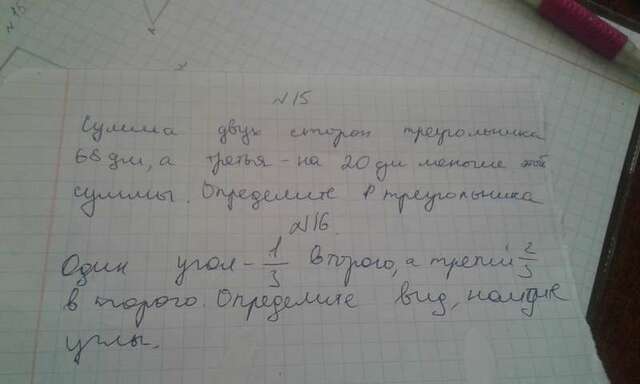 N15
Сумма двух сторон треугольника
68 дм, а третья - на 20 дм меньше этой
суммы. Определите P треугольника
N16.
Один угол - 1/3 второго, а третий 2/3
второго. Определите вид, найдите
углы.
N 15